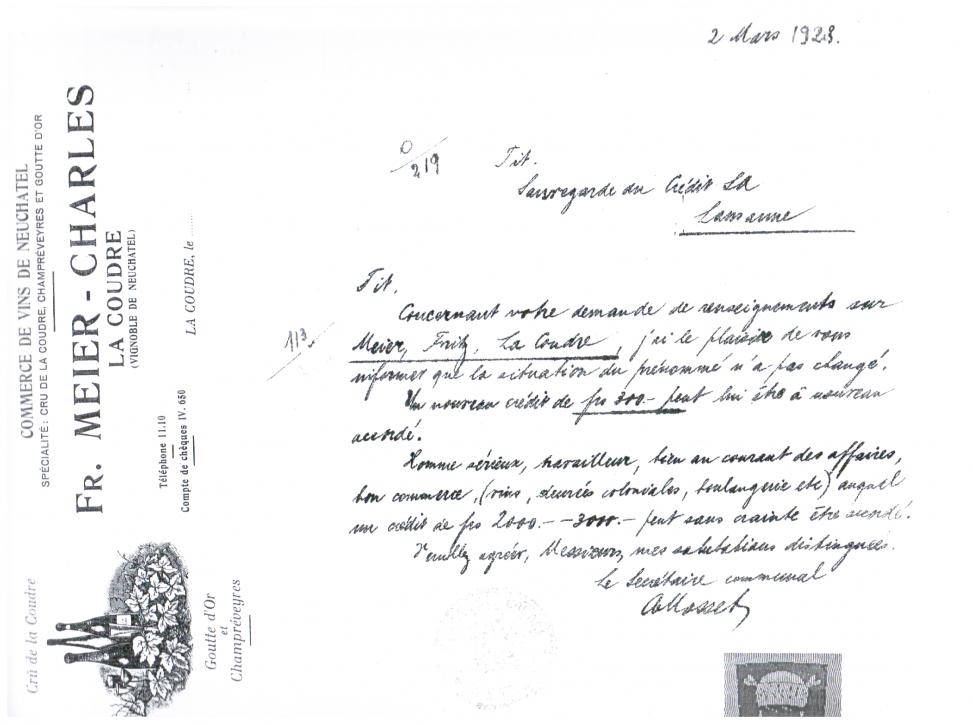 COMMERCE DE VINS DE NEUCHATEL
SPÉCIALITÉ : CRU DE LA COUDRE, CHAMPRÉVEYRES ET GOUTTE D'OR
FR. MEIER - CHARLES
LA COUDRE
(VIGNOBLE DE NEUCHATEL)
Téléphone 11.10
Compte de chèques IV. 650
LA COUDRE, le
Crû de la Coudre
Goutte d'Or
et
Champréveyres
2 Mars 1928.
O/219
Tit.
Sauvegarde du Crédit SA
Lausanne
Tit.
Concernant votre demande de renseignements sur
113
Meier, Fritz, La Coudre, j'ai le plaisir de vous
informer que la situation du prénommé n'a pas changé.
Un nouveau crédit de frs 300.- peut lui être à nouveau
accordé.
Homme sérieux, travailleur, bien au courant des affaires,
bon commerce, (vins, denrées coloniales, boulangerie etc) auquel
un crédit de frs 2000.- -3000.- peut sans crainte être accordé.
Veuillez agréer, Messieurs, mes salutations distinguées.
Le Secrétaire communal
Mosset